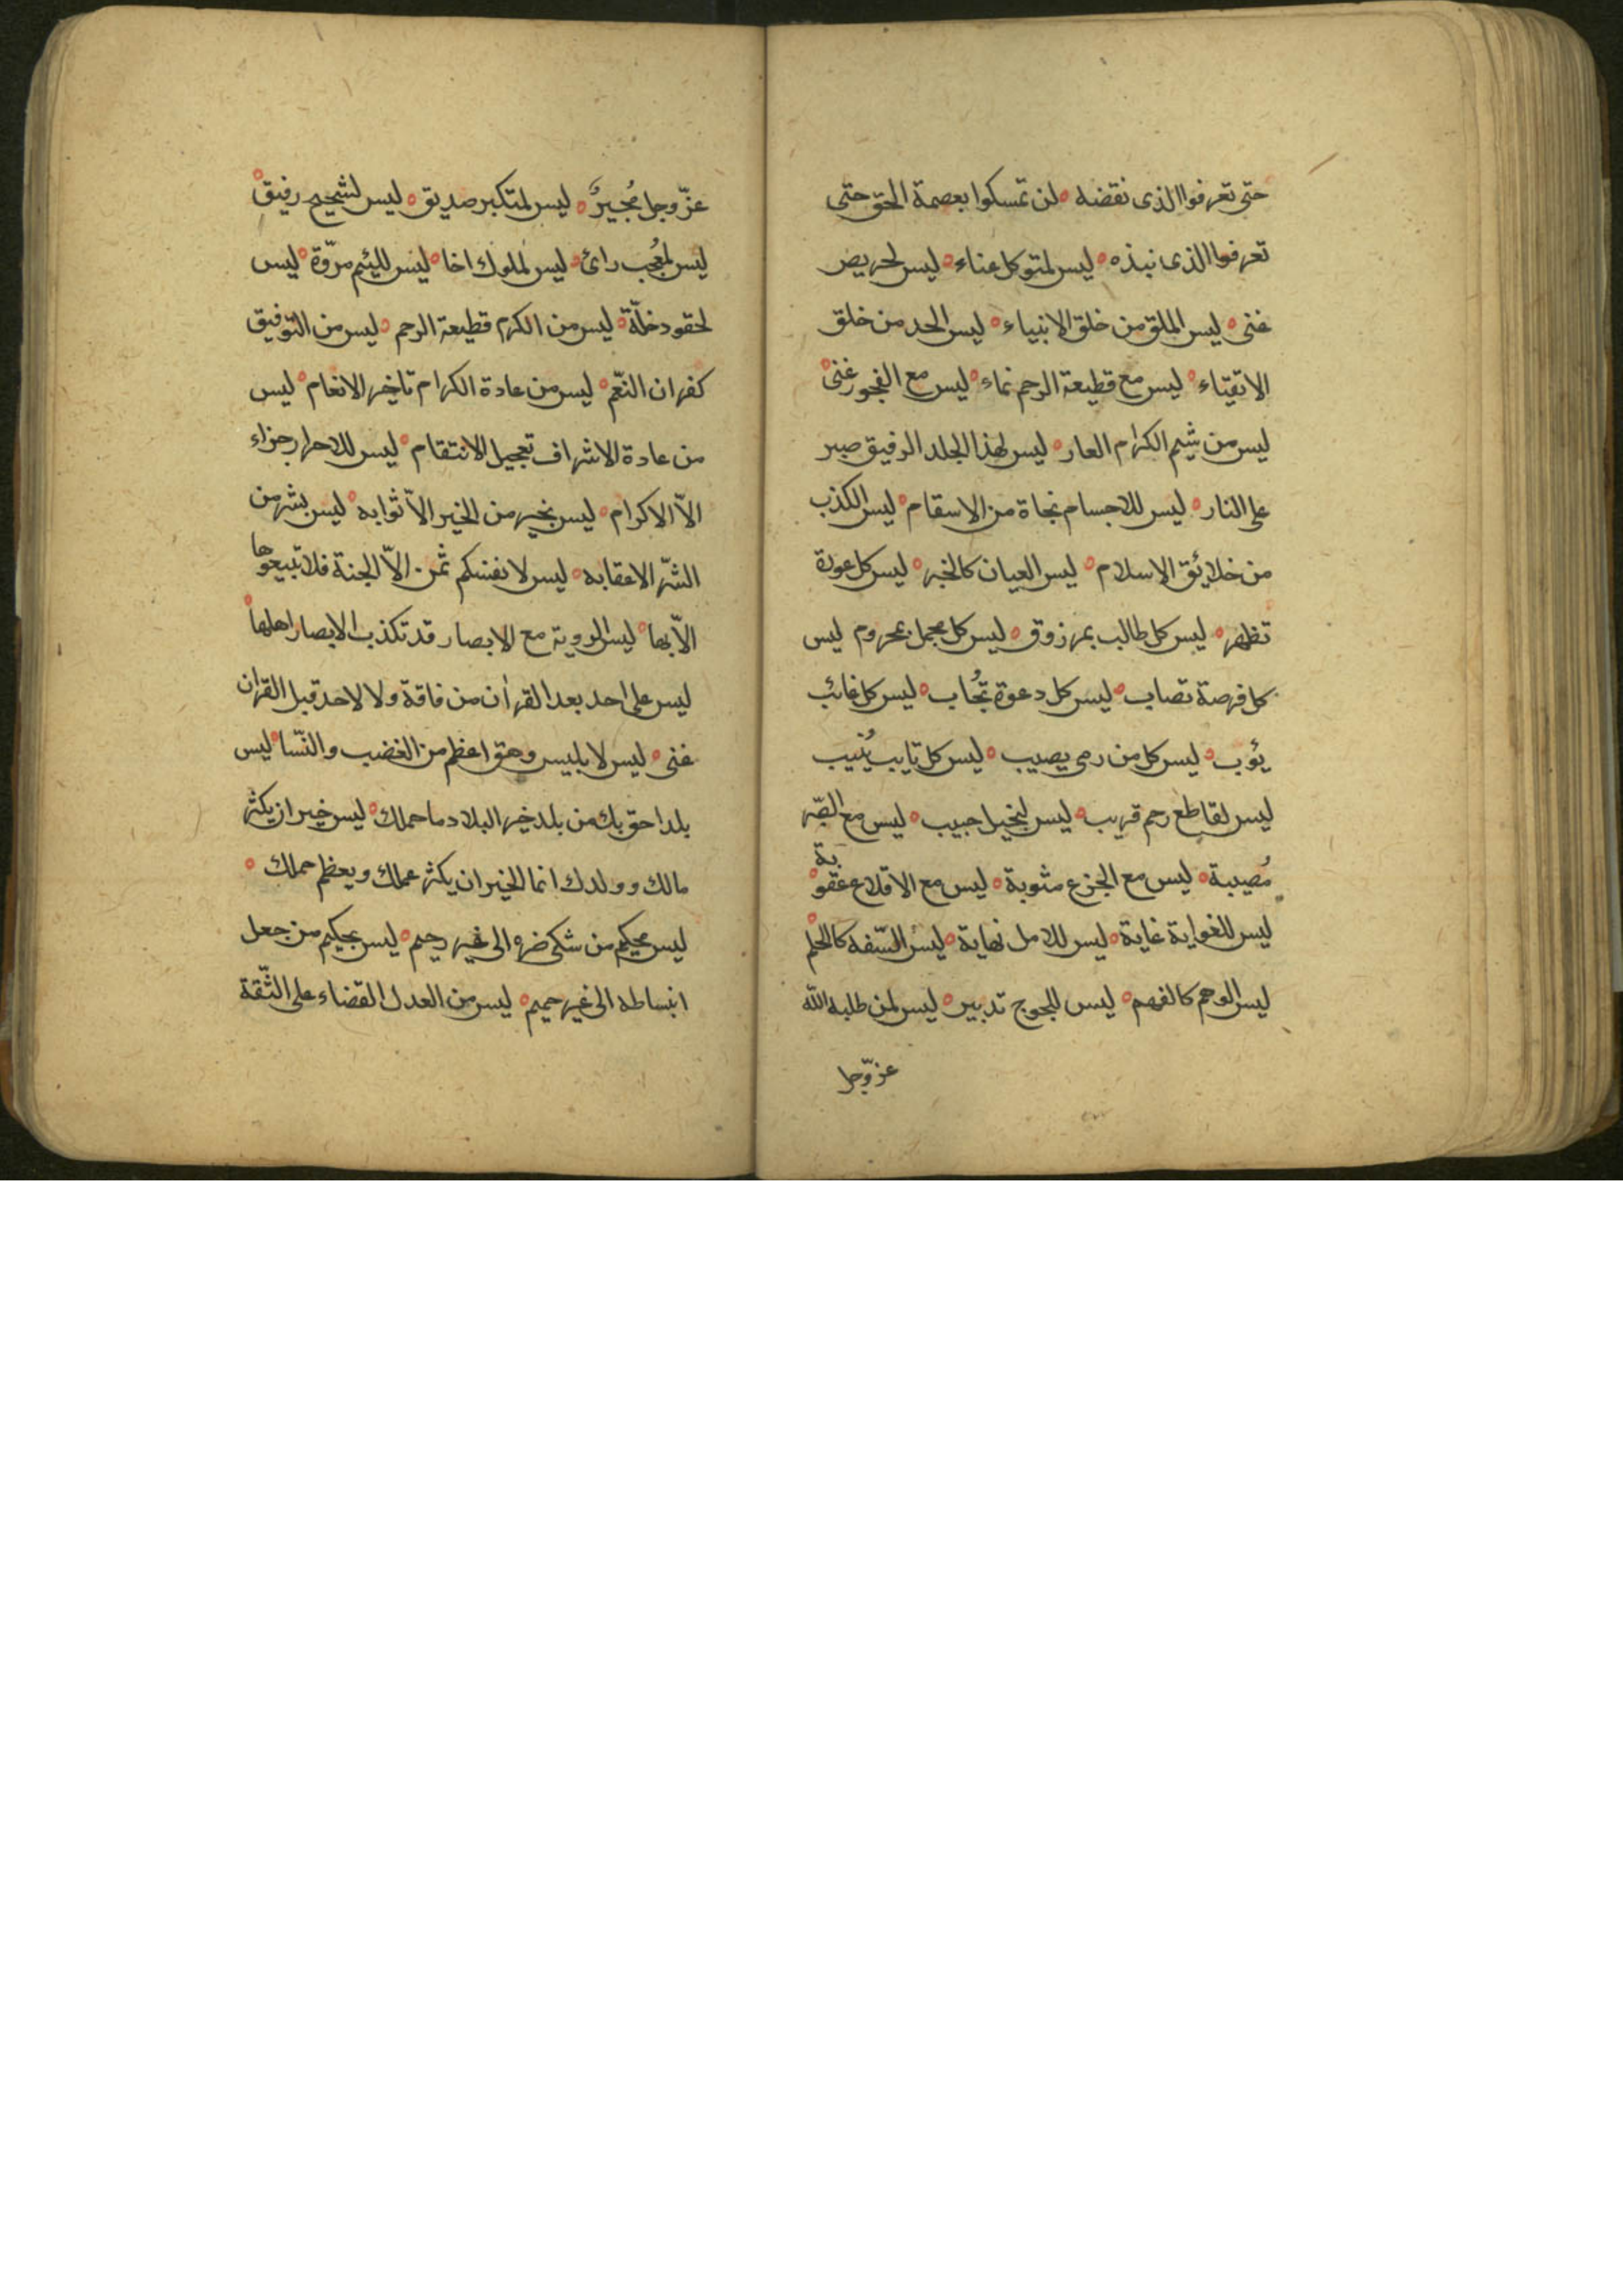 حتى تعرفوا الذى نقضه ه لن تمسكوا بعصمة الحق حتى
تعرفوا الذى نبذه ه ليس لمتوكل عناء ه ليس لحريص
غنى ه ليس الملق من خلق الانبياء ه ليس الحد من خلق
الاتقياء ه ليس مع قطيعة الرحم نماء ه ليس مع الفجور غنى ه
ليس من شيم الكرام العار ه ليس لهذا الجلد الرقيق صبر
على النار ه ليس للاجسام نجاة من الاسقام ه ليس الكذب
من خلائق الاسلام ه ليس العيان كالخبر ه ليس كل عورة
تظهر ه ليس كل طالب بمرزوق ه ليس كل مجمل بمحروم ليس
كل فرصة تصاب ه ليس كل دعوة تُجاب ه ليس كل غائب
يؤب ه ليس كل من رمى يصيب ه ليس كل تايب يُنيب
ليس لقاطع رحم قريب ه ليس لبخيل حبيب ه ليس مع الصّبر
مُصيبة ه ليس مع الجزع مثوبة ه ليس مع الاقلاع عقوبة ه
ليس للغواية غاية ه ليس للامل نهاية ه ليس السّفه كالحلم ه
ليس الوهم كالفهم ه ليس للجوج تدبير ه ليس لمن طلبه الله
عزّ وجل
عزّ وجل مُجيرٌ ه ليس لمتكبر صديق ه ليس لشحيح رفيق ه
ليس لمُعجب رائ ه ليس لملوك اخا ه ليس للئيم مروّة ه ليس
لحقود خلّة ه ليس من الكرم قطيعة الرحم ه ليس من التّوفيق
كفران النّعم ه ليس من عادة الكرام تاخير الانعام ه ليس
من عادة الاشراف تعجيل الانتقام ه ليس للاحرار جزاء
الاّ الاكرام ه ليس بخير من الخير الاّ ثوابه ه ليس بشر من
الشّر الا عقابه ه ليس لانفسكم ثمن الاّ الجنة فلا تبيعوها
الاّ بها ه ليس الروية مع الابصار قد تكذب الابصار اهلها ه
ليس على احد بعد القرأن من فاقة ولا لاحد قبل القران
غنى ه ليس لابليس وهق اعظم من الغضب والنّسا ه ليس
بلد احق بك من بلد خير البلاد ما حملك ه ليس خير ان يكثر
مالك وولدك انما الخير ان يكثر عملك ويعظم حملك ه
ليس بحكيم من شكى ضره الى غير رحيم ه ليس بحكيم من جعل
انبساطه الى غير حميم ه ليس من العدل القضاء على الثّقة